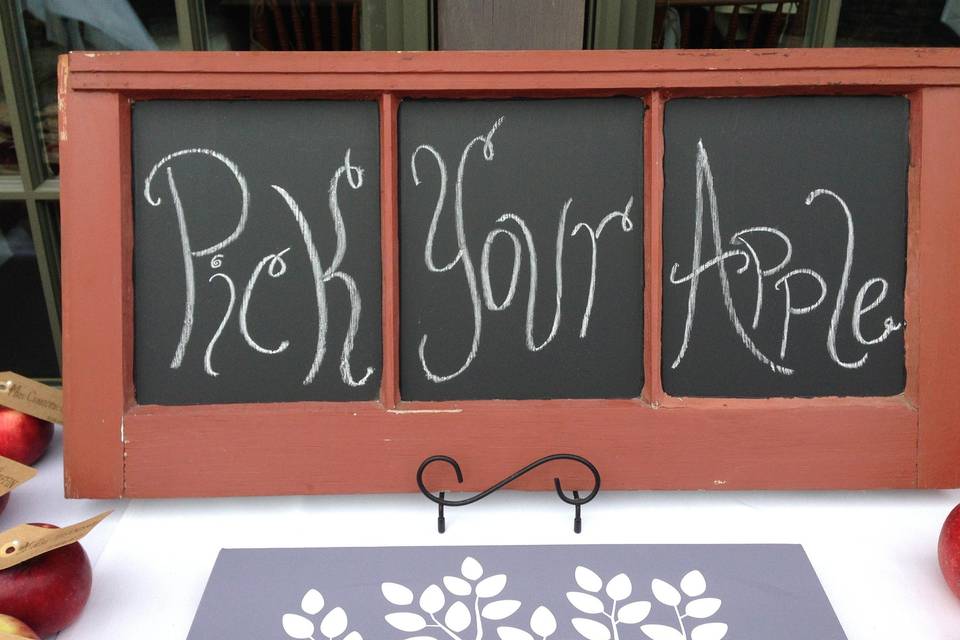 Pick Your Apple